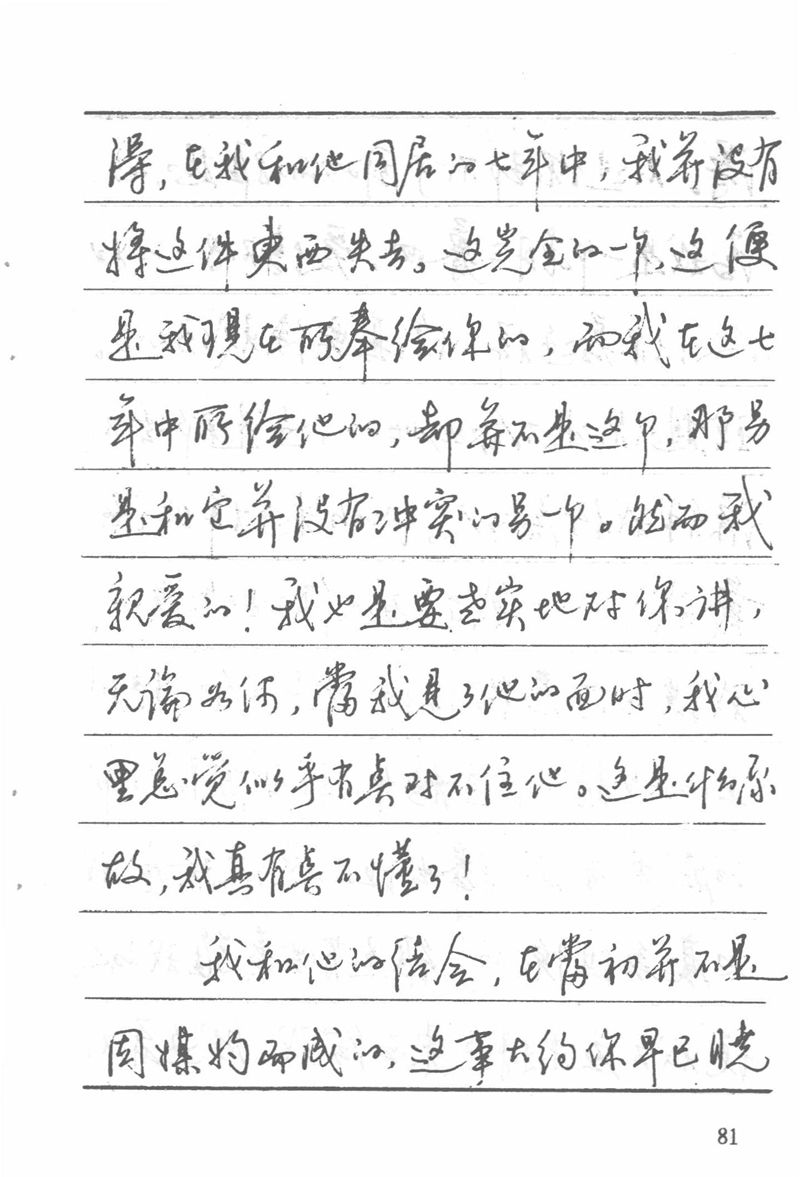 得，在我和他同居的七年中，我并没有
将这件東西失去。这完全的一个，这便
是我現在所奉给你的，而我在这七
年中所给他的，却并不是这个，那另
是和它并没有冲突的另一个。然而我
親爱的！我也是要老实地对你讲，
无論如何，當我見了他的面时，我心
里总覺似乎有奌对不住他。这是什么原
故，我真有奌不懂了！
我和他的结合，在當初并不是
因媒妁而成的，这事大约你早已曉
81